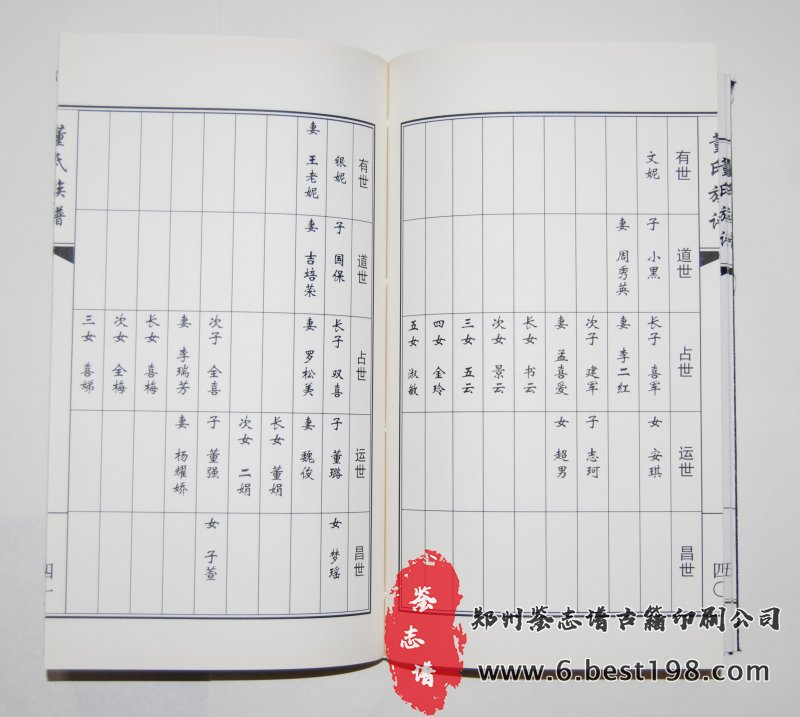 董氏族谱
有世
文妮
道世
子 小黑
妻 周秀英
占世
长子 喜军
妻 李二红
次子 建军
妻 孟喜爱
长女 书云
次女 景云
三女 五云
四女 金玲
五女 淑敏
运世
女 安琪
子 志珂
女 超男
昌世
四〇
有世
银妮
妻 王老妮
道世
子 国保
妻 吉培荣
占世
长子 双喜
妻 罗松美
次子 全喜
妻 李瑞芳
长女 喜梅
次女 全梅
三女 喜娣
运世
子 董璐
妻 魏俊
长女 董娟
次女 二娟
子 董强
妻 杨耀娇
昌世
女 梦瑶
女 子萱
董氏族谱
四一
鉴志谱
郑州鉴志谱古籍印刷公司
www.6.best198.com